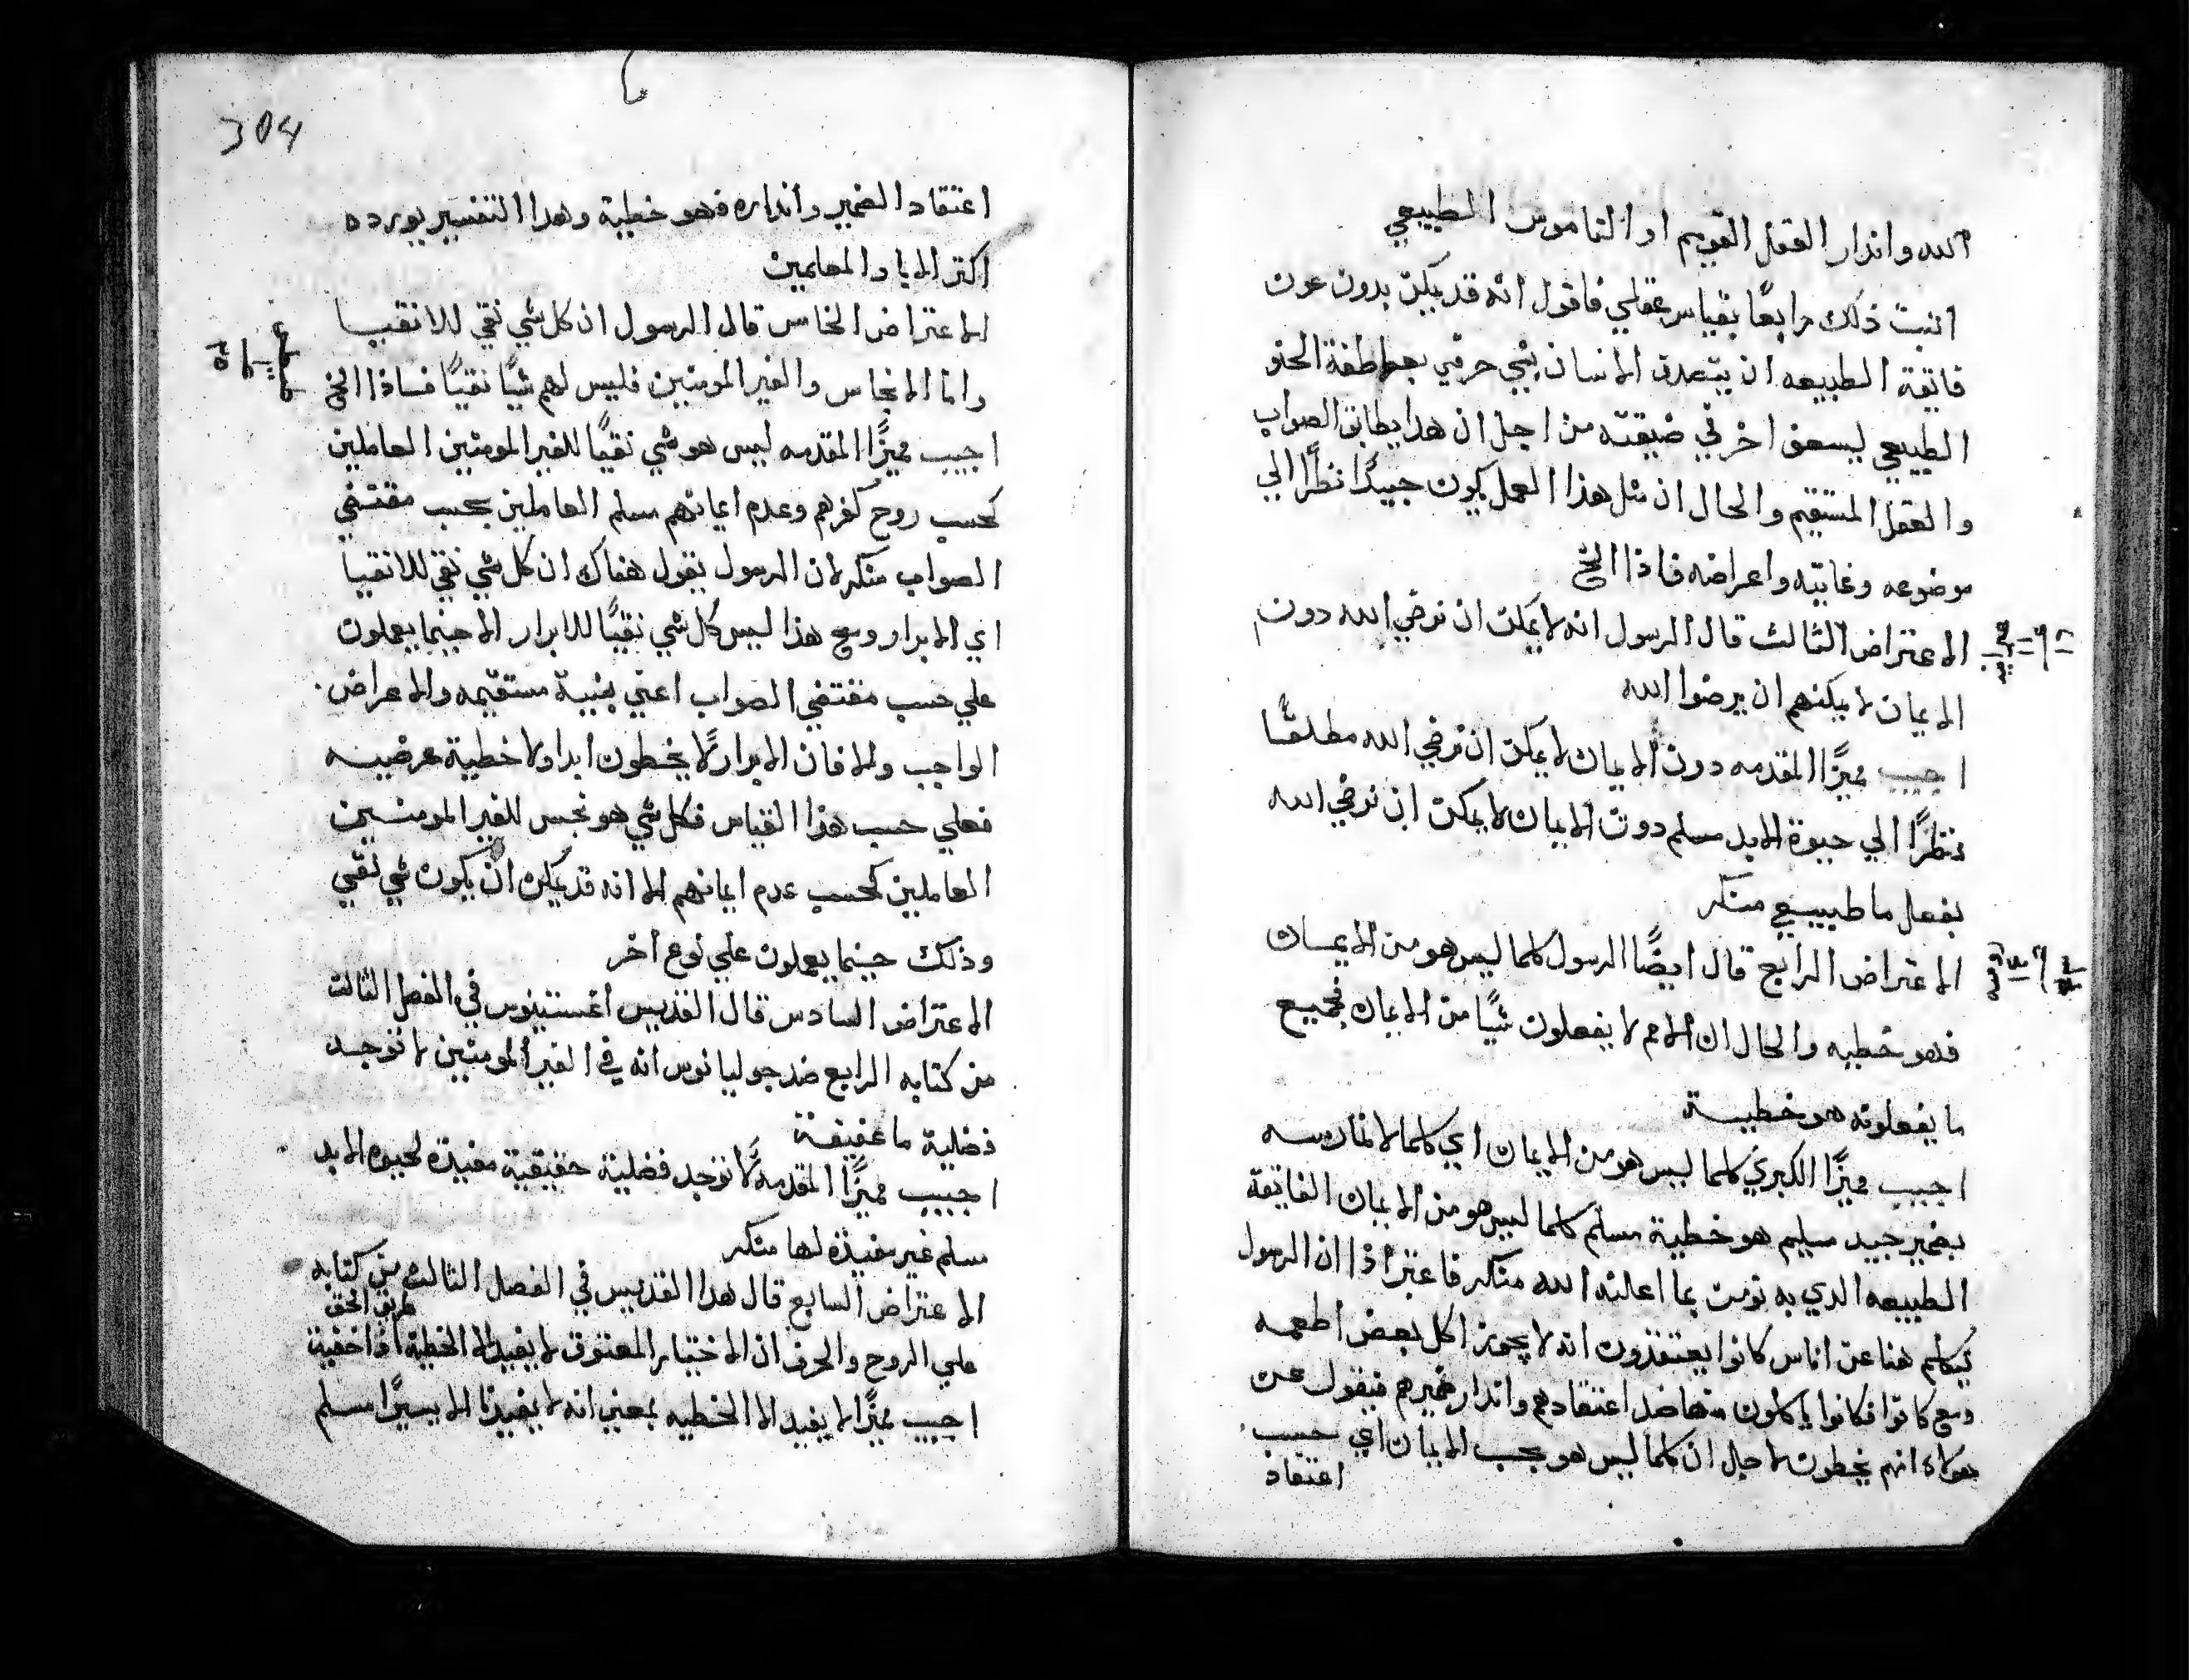 الله وانذار العقل القويم او الناموس الطبيعي
اثبت ذلك رابعًا بقياس عقلي فاقول انه قد يمكن بدون عون
فايقة الطبيعه ان يتصدق الانسان بشي حرفي بعواطفة الحنو
الطبيعي ليسعف اخر في ضيقته من اجل ان هدا يطابق الصواب
والعقل المستقيم والحال ان مثل هذا العمل يكون جيدًا نظرًا الي
موضوعه وغايته واعراضه فاذا الخ
الاعتراض الثالث قال الرسول انه لا يمكن ان نرضي الله دون
الايمان لا يمكنهم ان يرضوا الله
اجيب مميزًا المقدمه دون الايمان لا يمكن ان نرضي الله مطلقًا
نظرًا الي حيوة الابد مسلم دون الايمان لا يمكن ان نرضي الله
بفعل ما طبيعي منكر
الاعتراض الرابع قال ايضًا الرسول كلما ليس هو من الايمان
فهو خطيه والحال ان الامم لا يفعلون شيًا من الايمان فجميع
ما يفعلونه هو خطية
اجيب مميزًا الكبري كلما ليس هو من الايمان اي كلما لا نمارسه
بضمير جيد سليم هو خطية مسلم كلما ليس هو من الايمان الفايقة
الطبيعه الدي به نومن بما اعلنه الله منكر فاعتبر اذا ان الرسول
يتكلم هنا عن اناس كانوا يعتقدون انه لا يجوز اكل بعض اطعمه
ومع كانوا فكانوا ياكلون منها ضد اعتقادهم وانذار ضميرهم فيقول عن
هولاء انهم يخطون لاجل ان كلما ليس هو بحسب الايمان اي حسب
اعتقاد
304
اعتقاد الضمير وانذاره فهو خطية وهدا التفسير يورده
اكتر الابا والمعلمين
الاعتراض الخامس قال الرسول ان كل شي نقي للانقيا
واما الانجاس والغير المومنين فليس لهم شيًا نقيًا فاذا الخ
اجيب مميزًا المقدمه ليس هو شي نقيًا للغير المومنين العاملين
كحسب روح كفرهم وعدم ايمانهم مسلم العاملين بحسب مقتضي
الصواب منكر لان الرسول يقول هناك ان كل شي نقي للانقيا
اي الابرار ومع هذا ليس كل شي نقيًا للابرار الا حينما يعملون
علي حسب مقتضي الصواب اعني بنية مستقيمه والاعراض
الواجب والا فان الابرار لا يخطون ابدا ولا خطية عرضيه
فعلي حسب هذا القياس فكل شي هو نجس للغير المومنين
العاملين كحسب عدم ايمانهم الا انه قد يمكن ان يكون شي نقي
وذلك حينما يعملون علي نوع اخر
الاعتراض السادس قال القديس اغستينوس في الفصل الثالث
من كتابه الرابع ضد جوليانوس انه في الغير المومنين لا توجد
فضلية ما حقيقة
اجيب مميزًا المقدمه لا توجد فضلية حقيقية مفيدة لحيوه الابد
مسلم غير مفيدة لها منكر
الاعتراض السابع قال هدا القديس في الفصل الثالث من كتابه
علي الروح والحرف ان الاختيار المعتوق لا يفيد الا الخطية اذا خفية
طريق الحق
اجيب مميزًا لا يفيد الا الخطيه بمعني انه لا يفيدنا الا يسيرًا مسلم